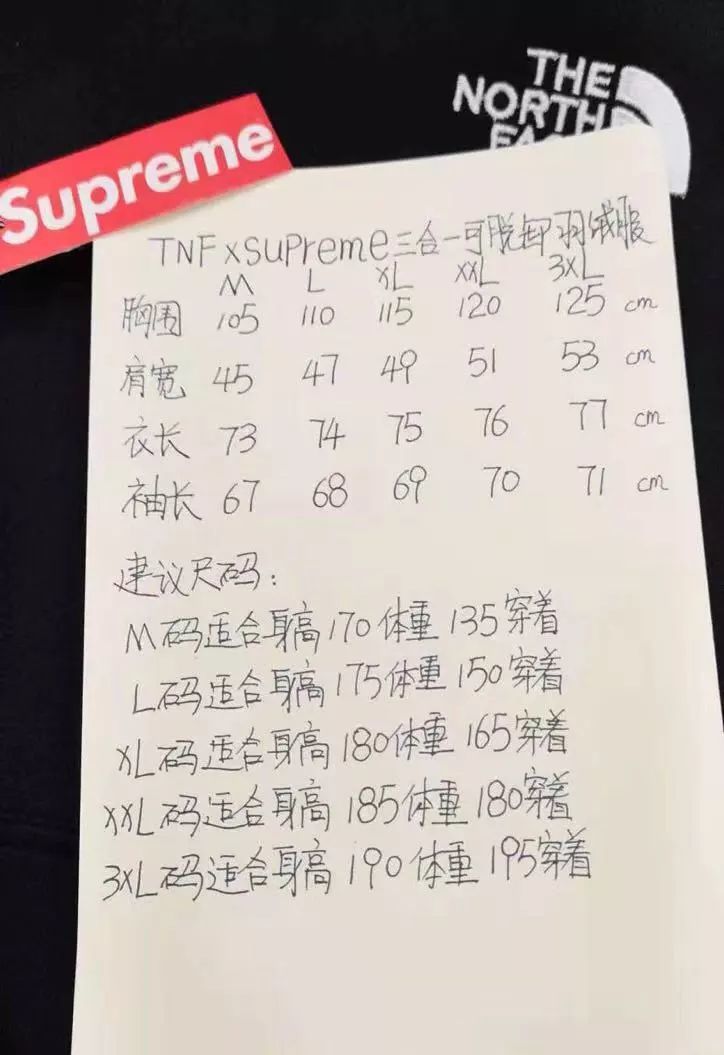 THE
NORTH
FACE
Supreme
TNF x Supreme三合一可脱卸羽绒服
M L XL XXL 3XL
胸围 105 110 115 120 125 cm
肩宽 45 47 49 51 53 cm
衣长 73 74 75 76 77 cm
袖长 67 68 69 70 71 cm
建议尺码:
M码适合身高170体重135穿着
L码适合身高175体重150穿着
XL码适合身高180体重165穿着
XXL码适合身高185体重180穿着
3XL码适合身高190体重195穿着